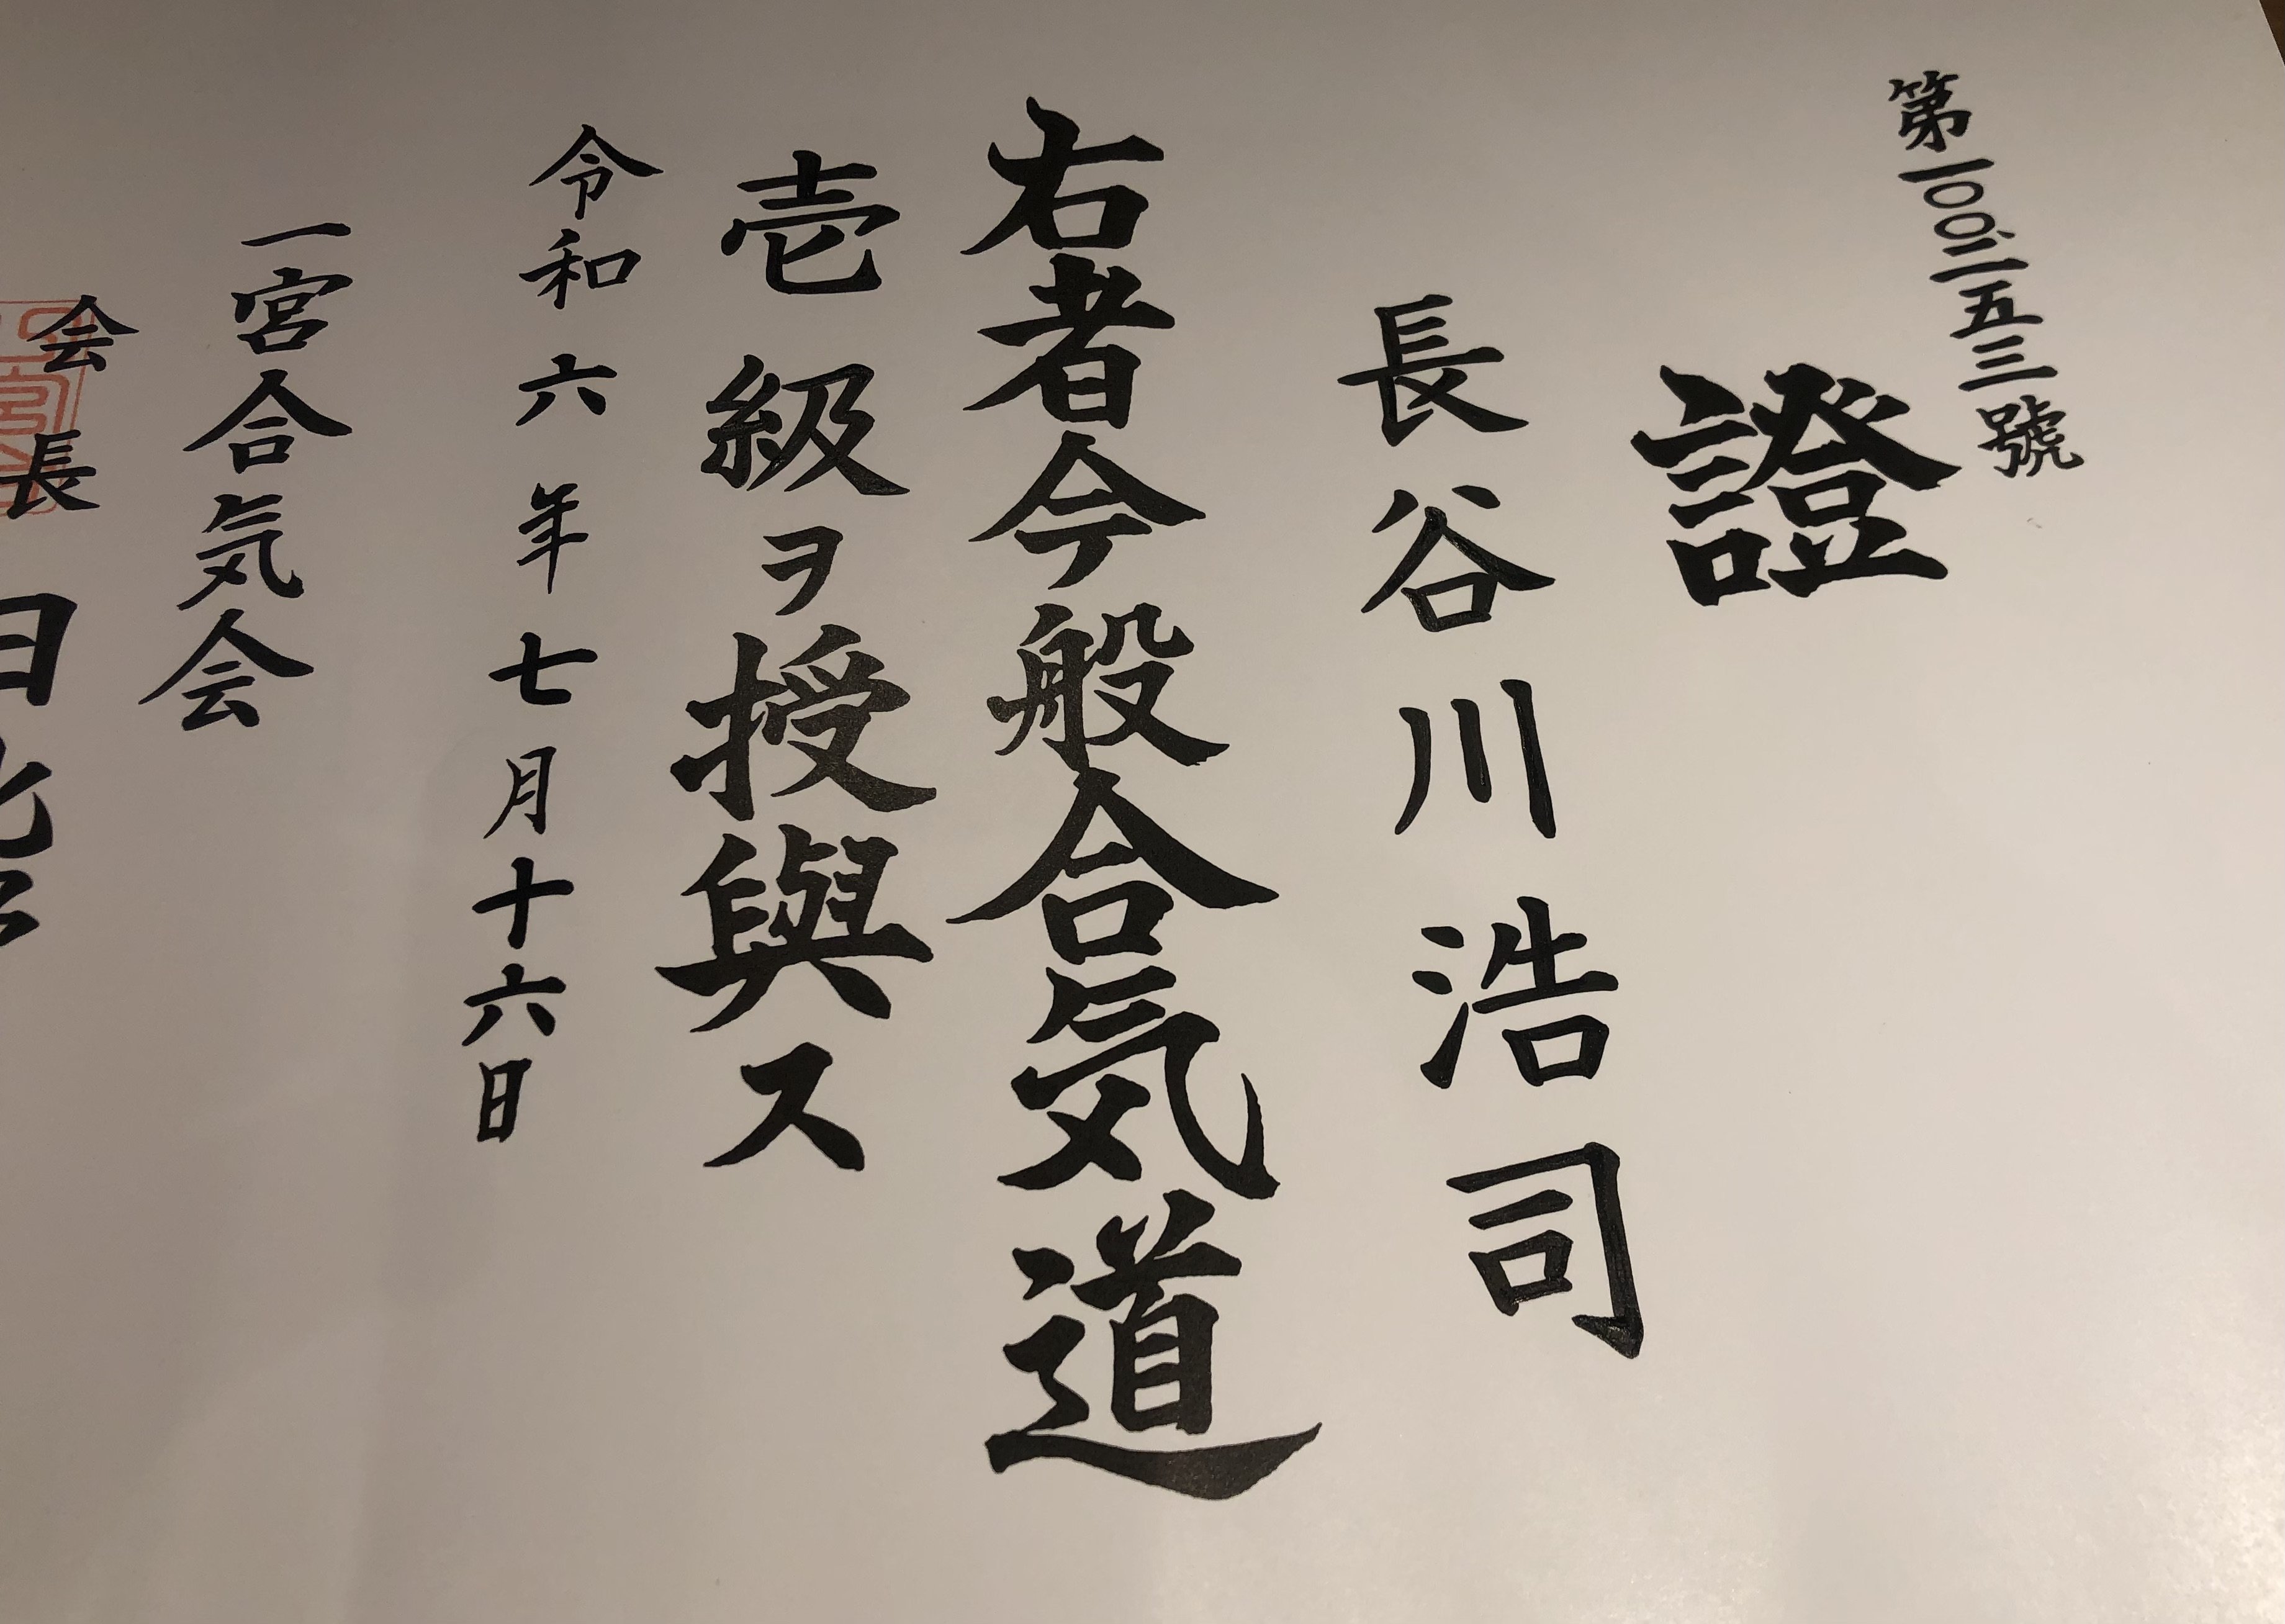 第一〇〇二五三號
證
長谷川浩司
右者今般合気道
壱級ヲ授與ス
令和六年七月十六日
一宮合気会
会長